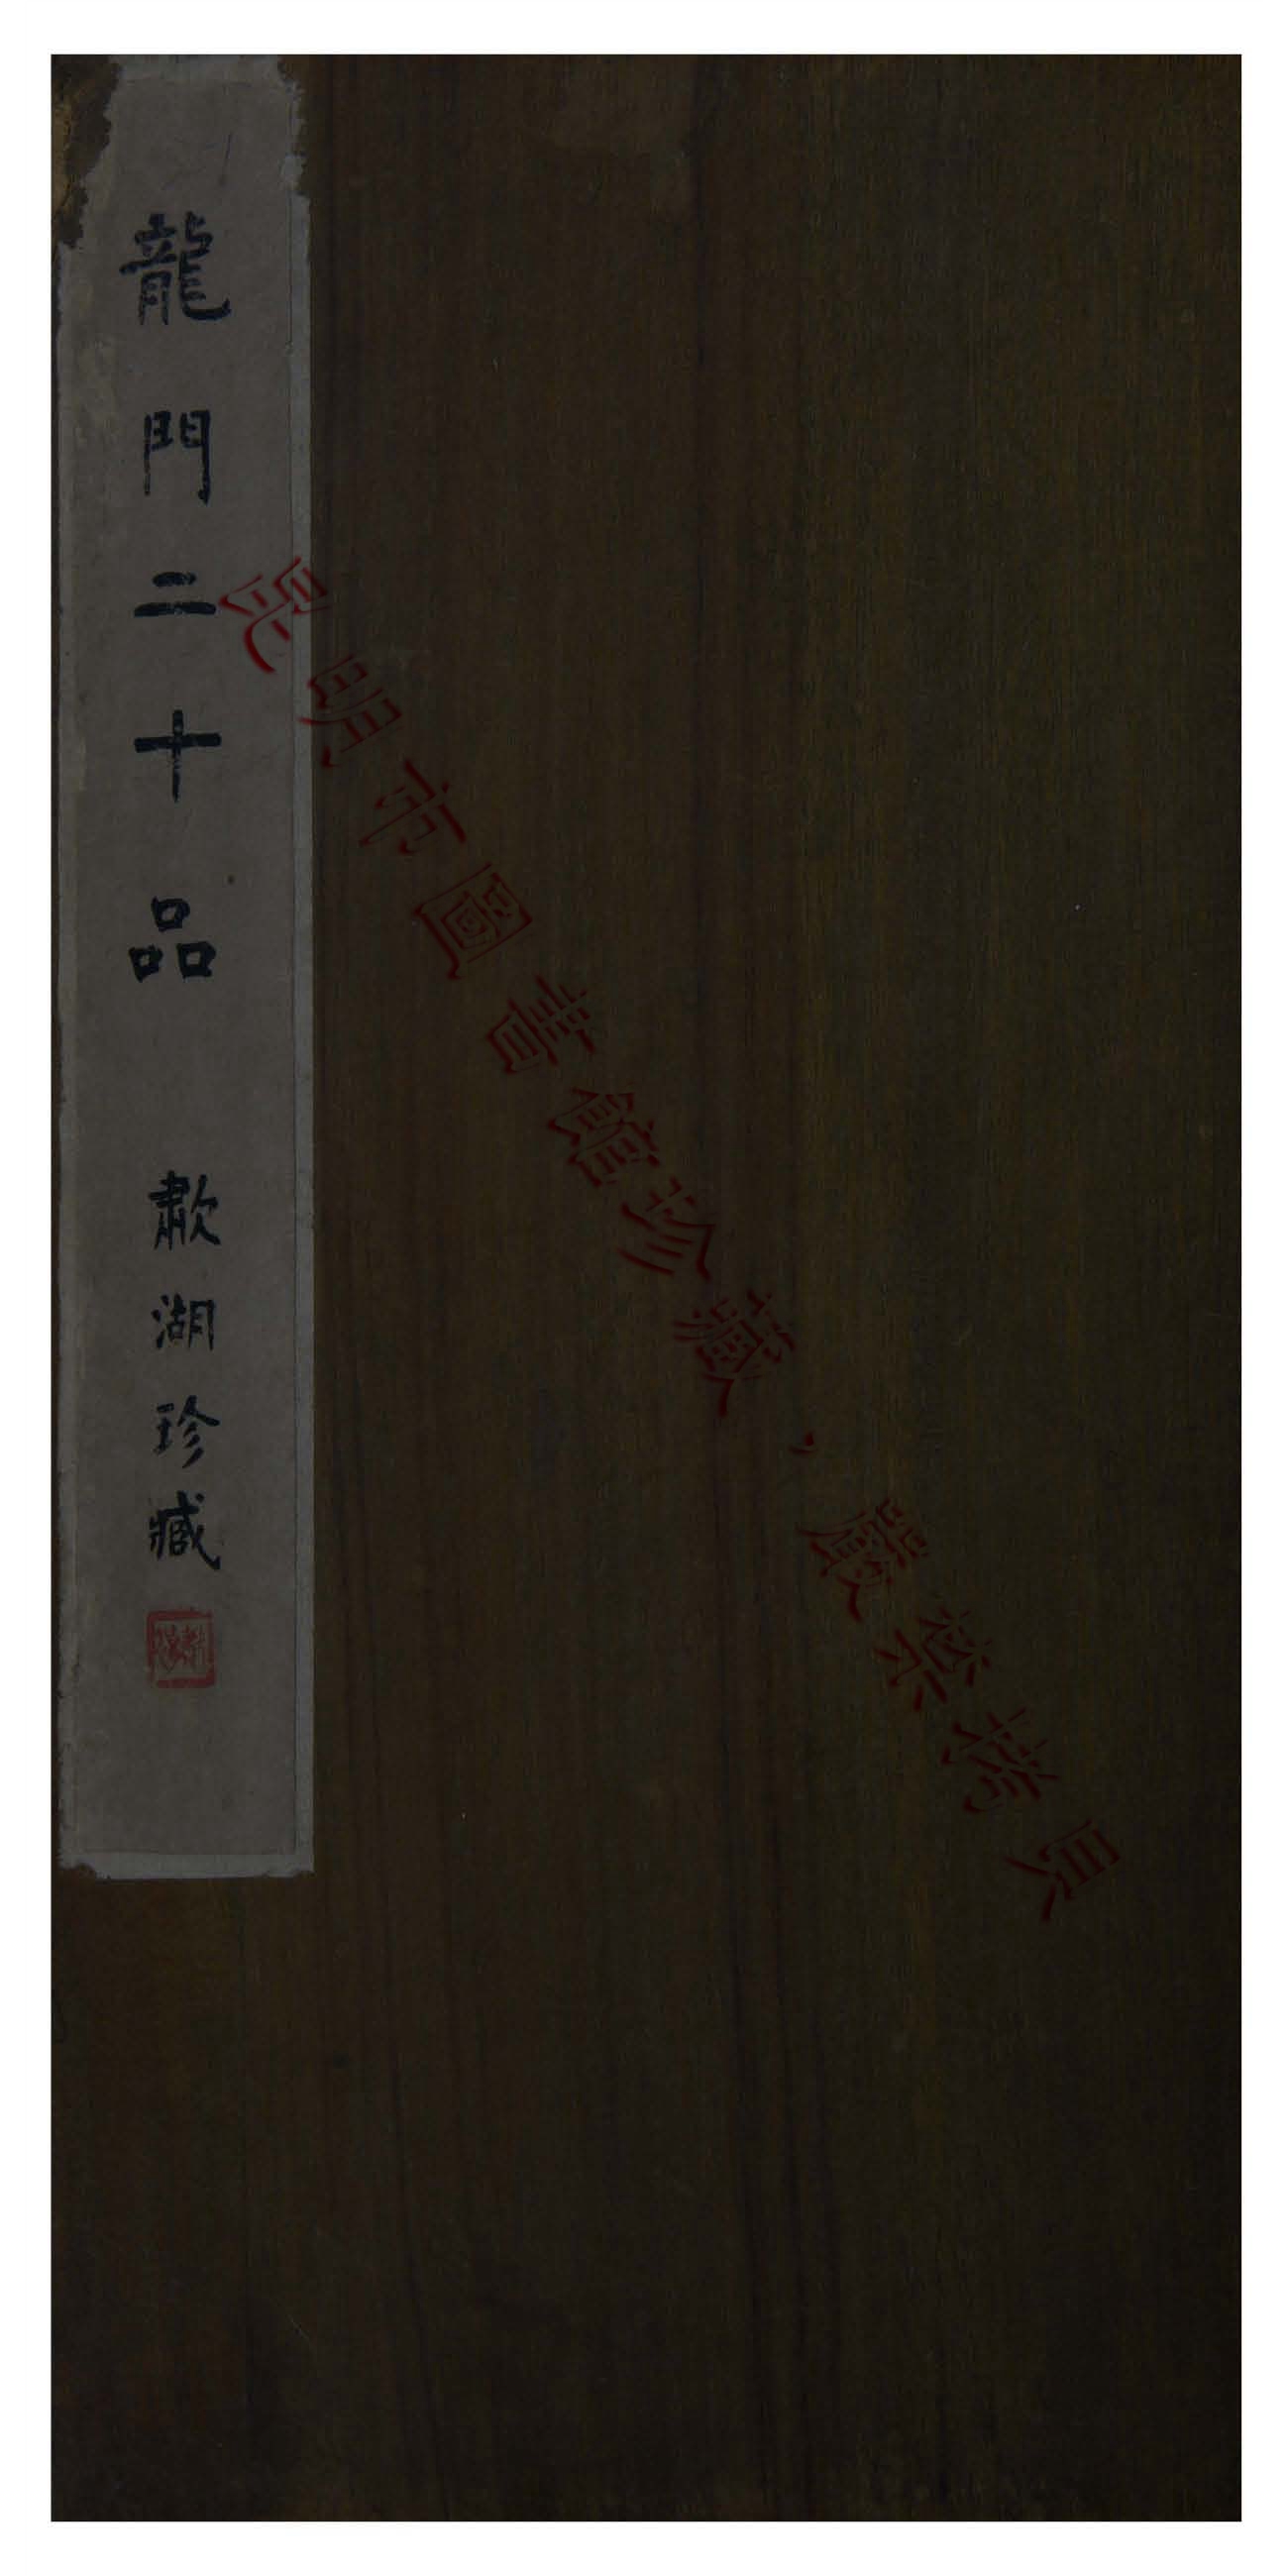 龍門二十品 歗湖珍藏
昆明市圖書館珍藏，嚴禁拷貝